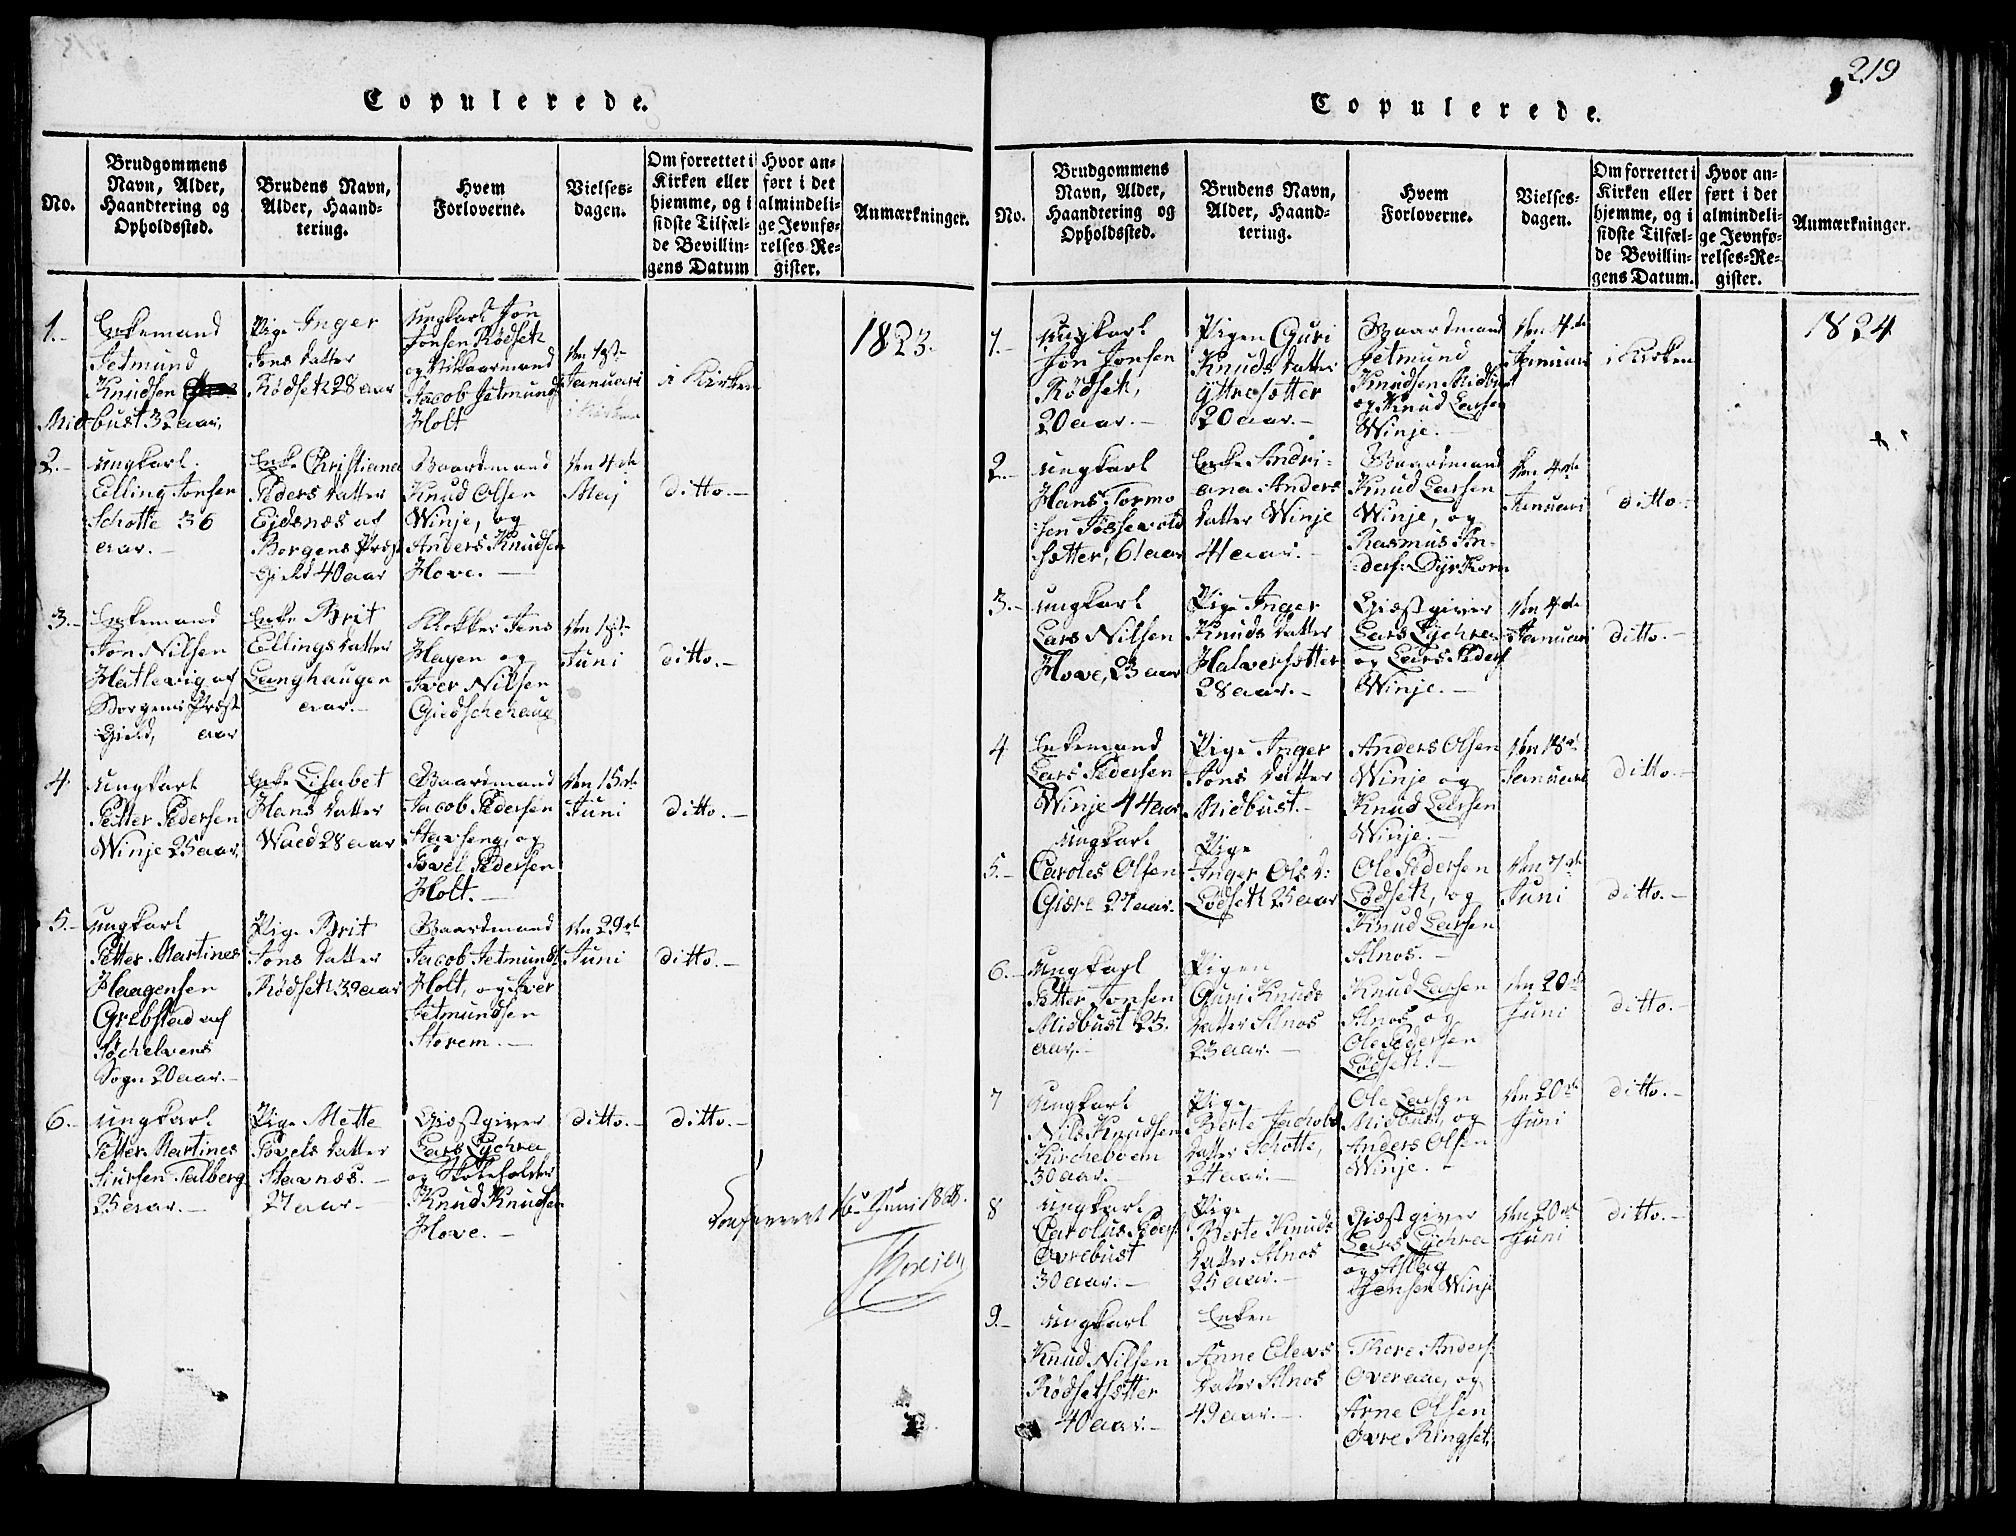 Copulerede.
No.
Brudgommens
Navn, Alder,
Haandtering og
Opholdssted.
Brudens Navn,
Alder, Haand-
tering.
Hvem
Forloverne.
Vielses-
dagen.
Om forrettet i
Kirken eller
hjemme, og i
sidste Tilfæl-
de Bevillin-
gens Datum
Hvor an-
ført i det
almindeli-
ge Jevnfø-
relses-Re-
gister.
Anmærkninger.
1823.
1.-
Enkemand
Jetmund
Knudsen
Midbust 32 aar.
Pige Inger
Jons Datter
Rødseth 28 aar
Ungkarl Jon
Jonsen Rødseth
og Vilkaarmand
Jacob Jetmunds
Holt
den 1ste
Januari
i Kirken
2.-
Ungkarl
Elling Jonsen
Schotte 36
aar.-
Enke Christiana
Peders Datter
Eidsnæs af
Borgens Præste
Gield 40 aar
Gaardmand
Knud Olsen
Winje, og
Anders Knudsen
Hove.-
den 4de
Maj
ditto.-
3.-
Enkemand
Jon Nilsen
Hatlevig af
Borgens Præste
Gield, aar
Enke Brit
Ellings Datter
Langhaugen
aar.-
Klokker Jens
Hagen og
Iver Nilsen
Giedschehaug
den 1ste
Juni
ditto.-
4.
Ungkarl
Petter Pedersen
Winje 25 aar,
Enke Lisabet
Hans Datter
Waed 28 aar
Gaardmand
Jacob Pedersen
Stavseng, og
Povel Pedersen
Holt.-
den 15de
Juni
ditto.-
5.-
Ungkarl
Petter Martines
Haagensen
Grebstad af
Søchelvens
Sogn 20 aar.-
Pige Brit
Jons Datter
Rødseth 39 aar
Gaardmand
Jacob Jetmunds
Holt, og Iver
Jetmundsen
Storem.-
den 29de
Juni
ditto.-
6.-
Ungkarl
Petter Martines
Siursen Talberg
25 aar.-
Pige Mette
Povels Datter
Stavnæs.-
27 aar-
Giæstgiver
Lars Lychre
og
Knud Knudsen
Hove.-
ditto.-
ditto.-
16 Juni 1828.
Copulerede.
219
No.
Brudgommens
Navn, Alder,
Haandtering og
Opholdssted.
Brudens Navn,
Alder, Haand-
tering.
Hvem
Forloverne.
Vielses-
dagen.
Om forrettet i
Kirken eller
hjemme, og i
sidste Tilfæl-
de Bevillin-
gens Datum.
Hvor an-
ført i det
almindeli-
ge Jevnfø-
relses-Re-
gister.
Anmærkninger.
1824
1.-
Ungkarl
Jon Jonsen
Rødseth,
20 aar.-
Pigen Guri
Knuds Datter
Yttresætter
20 aar.-
Gaardmand
Jetmund
Knudsen Midbust
og Knud Larsen
Winje.-
den 4de
Januari
i Kirken
2.-
Ungkarl
Hans Tormo
sen Fossevold
sætter, 61 aar
Enke Andri-
ana Anders
Datter Winje
41 aar.-
Gaardmand
Knud Larsen
Winje, og
Rasmus An-
ders: Dyrkorn
den 4de
Januari
ditto.-
3.-
Ungkarl
Lars Nilsen
Hove, 23 aar
Pige Inger
Knuds Datter
Halversætter
28 aar.-
Giæstgiver
Lars Lychre
og Lars Peders
Winje.-
den 4de
Januari
ditto.-
4
Enkemand
Lars Pedersen
Winje 44 aar
Pige Inger
Jons Datter
Midbust.-
Anders Olsen
Winje og
Knud Larsen
Winje.-
den 18de
Januari
ditto.-
5.-
Ungkarl
Caroles Olsen
Giære 27 aar.
Pige
Inger Ols D:
Lødseth 25 aar
Ole Pedersen
Lødseth, og
Knud Larsen
Alnos.-
den 7de
Juni
ditto.-
6.-
Ungkarl
Petter Jonsen
Midbust 23.
aar.-
Pigen
Guri Knuds
Datter Alnos
23 aar.-
Knud Larsen
Alnos og
Ole Pedersen
Lødseth.-
den 20de
Juni
ditto.-
7
Ungkarl
Nils Knudsen
Kircheboem
30 aar.-
Pige
Berte Jachobs
Datter Schotte,
24 aar.-
Ole Larsen
Midbust, og
Anders Olsen
Winje.-
den 20de
Juni
ditto.-
8
Ungkarl
Carolus Peders
Øvrebust
30 aar.-
Pige
Berte Knuds
Datter Alnos
25 aar.-
Giæstgiver
Lars Lychre
og Aslag
Jensen Winje
den 20de
Juni
ditto.-
9.-
Ungkarl
Knud Nilsen
Rødsetsætter
40 aar.-
Enken
Anne Elews
Datter Alnos
49 aar.-
Thore Anders:
Overaae, og
Arne Olsen
Øvre Ringset.